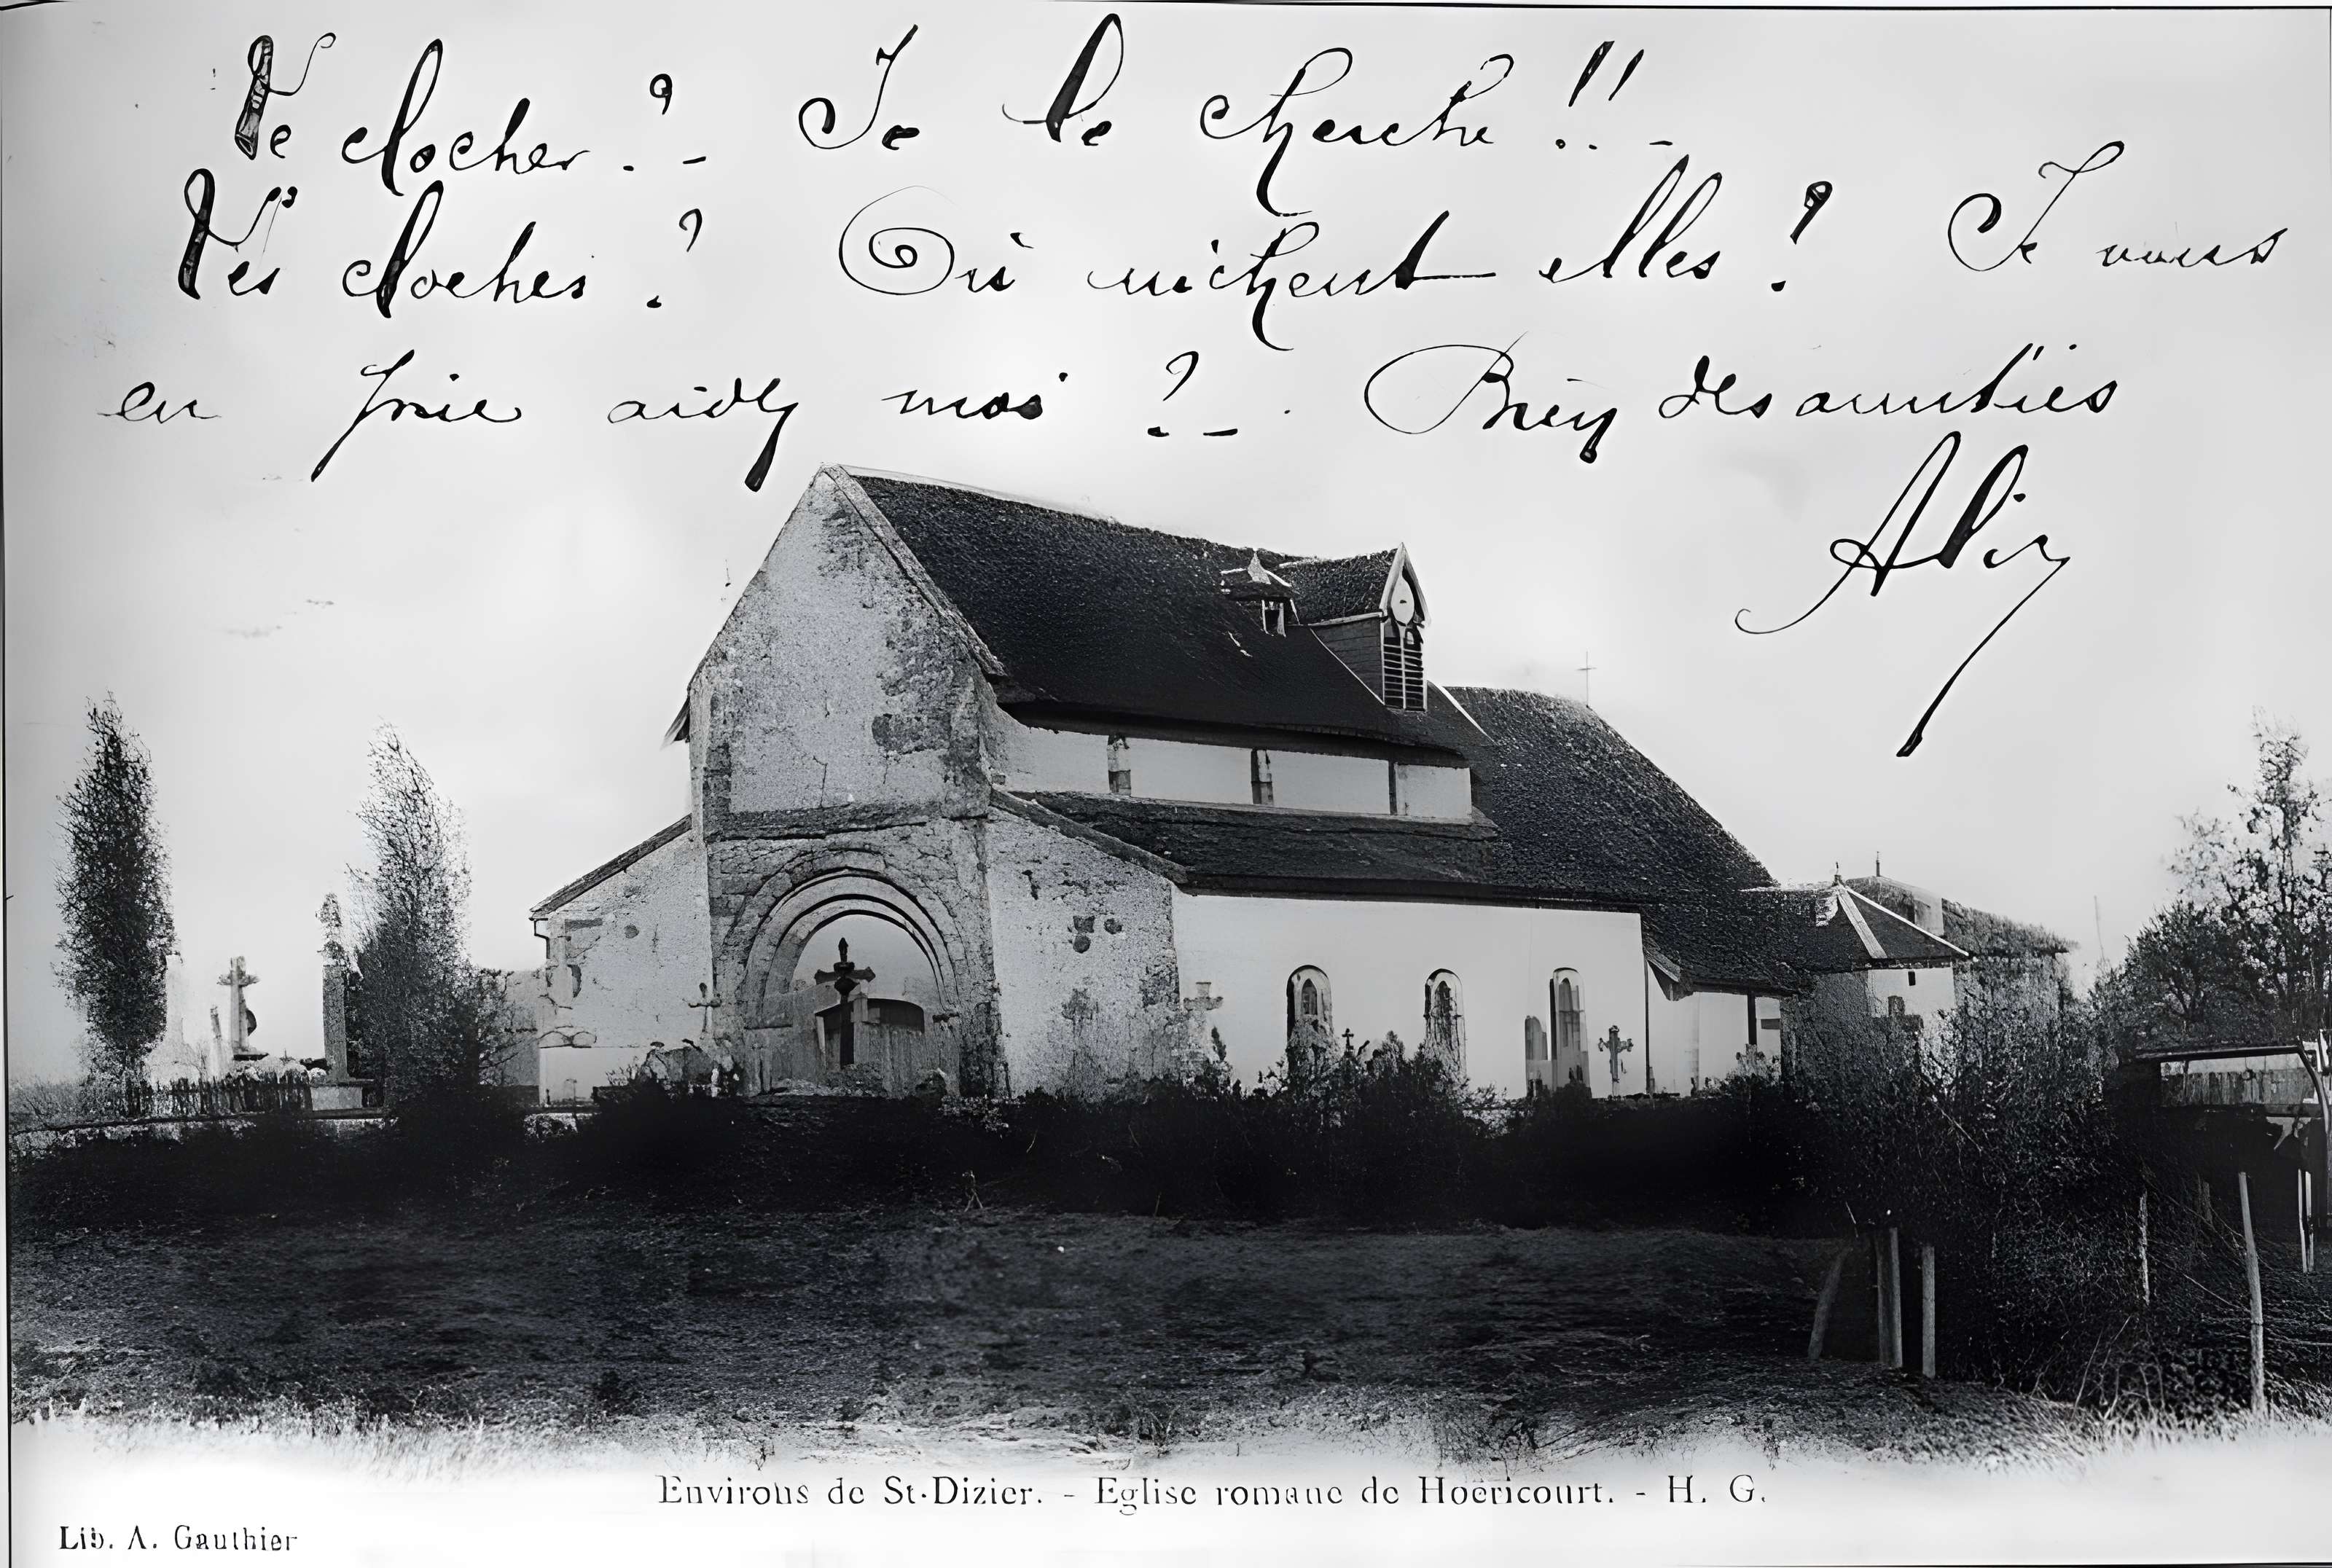 Le clocher ? - Je le cherche !! -
Les cloches ? Où nichent elles ? Je vous
en prie aidez moi ? - . Bien des amitiés
Environs de St-Dizier. - Eglise romane de Hoëricourt. - H. G.
Lib. A. Gauthier